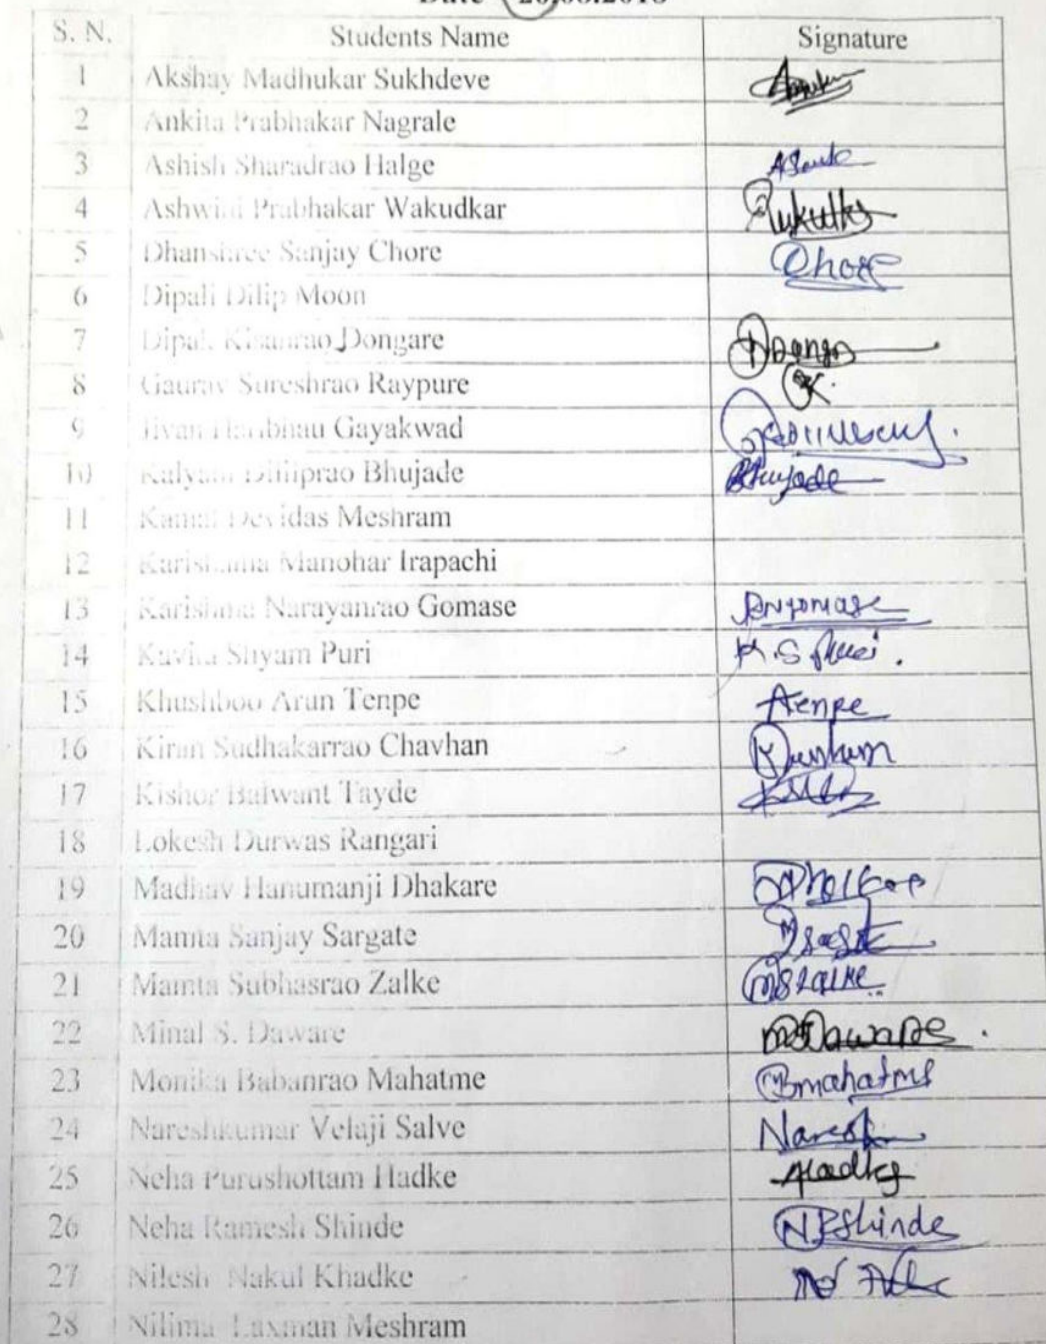 S. N. Students Name Signature
1 Akshay Madhukar Sukhdeve
2 Ankita Prabhakar Nagrale
3 Ashish Sharadrao Halge
4 Ashwini Prabhakar Wakudkar
5 Dhanshree Sanjay Chore Chore
6 Dipali Dilip Moon
7 Dipak Kisanrao Dongare
8 Gaurav Sureshrao Raypure
9 Jivan Haribhau Gayakwad
10 Kalyani Diliprao Bhujade Bhujade
11 Kamal Devidas Meshram
12 Karishama Manohar Irapachi
13 Karishma Narayanrao Gomase
14 Kavita Shyam Puri K.S Puri.
15 Khushboo Arun Tenpe Tenpe
16 Kiran Sudhakarrao Chavhan
17 Kishor Balwant Tayde
18 Lokesh Durwas Rangari
19 Madhav Hanumanji Dhakare
20 Mamta Sanjay Sargate
21 Mamta Subhasrao Zalke MSZalke
22 Minal S. Daware MSDaware.
23 Monika Babanrao Mahatme MBmahatme
24 Nareshkumar Velaji Salve Naresh
25 Neha Purushottam Hadke Hadke
26 Neha Ramesh Shinde NRShinde
27 Nilesh Nakul Khadke
28 Nilima Laxman Meshram